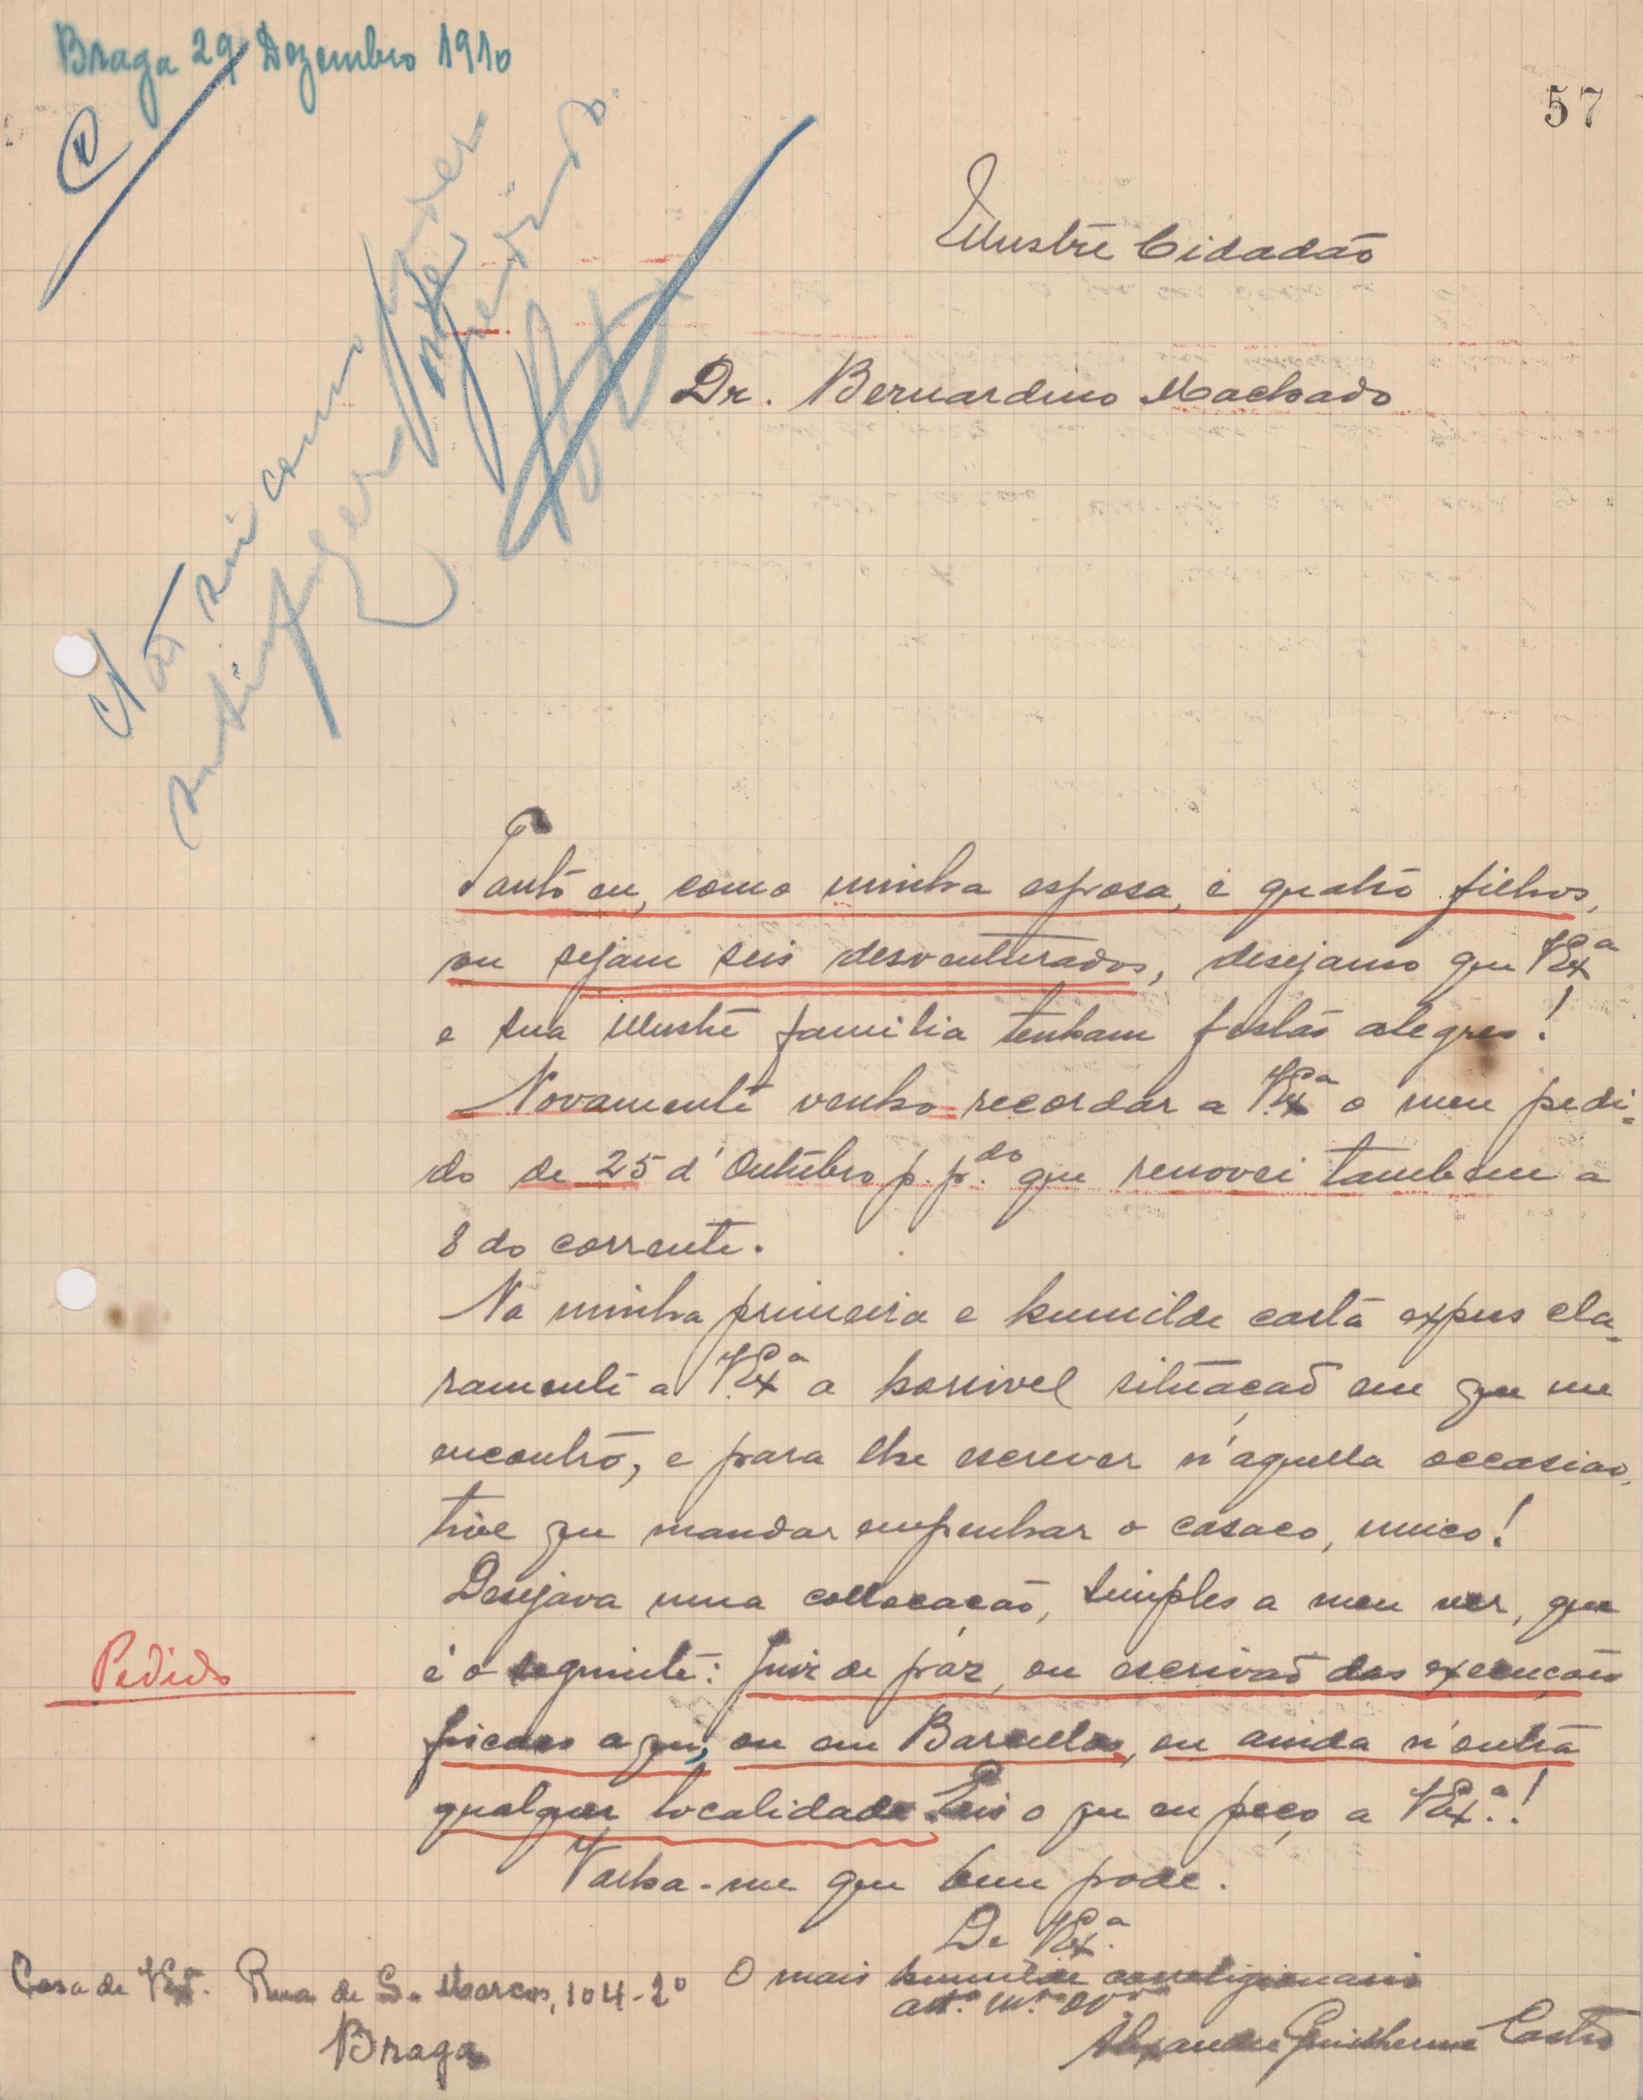 Braga 29 Dezembro 1910
57
Illustre Cidadão
Dr. Bernardino Machado
Não sei como
poder
este
Tanto eu, como minha esposa, e quatro filhos,
ou sejam seis desventurados, desejamos que V.Exª
e sua illustre familia tenham festas alegres!
Novamente venho recordar a V.Exª o meu pedi=
do de 25 d'Outubro p. p.do que renovei tambem a
8 do corrente.
Na minha primeira e humilde carta expus cla-
ramente a V.Exª a horrivel situação em que me
encontro, e para lhe escrever n'aquella occasião,
tive que mandar empenhar o casaco, unico!
Desejava uma collocação, simples a meu ver, que
é o seguinte: Juiz de paz, ou escrivão das execuções
fiscaes aqui, ou em Barcellos, ou ainda n'outra
qualquer localidade. Eis o que eu peço a V.Exª.!
Valha-me que bem pode.
De V.Exª.
Pedido
O mais humilde correligionario
attº. m.to
Alexandre Guilherme Castro
Casa de V.Exª. Rua de S. Marcos, 104-2º
Braga